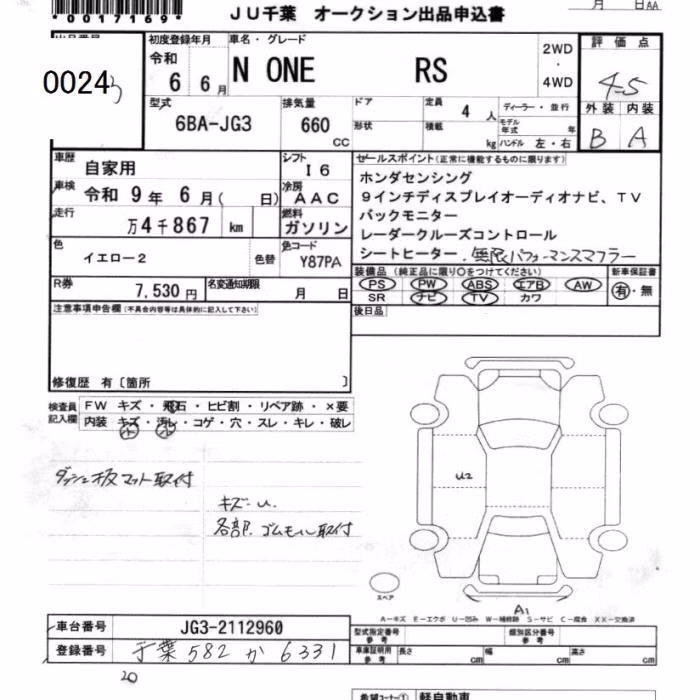 *00017169*
JU千葉 オークション出品申込書
月 日 AA
初度登録年月
令和
6 6月
車名・グレード
N ONE RS
2WD
・
4WD
評価点
4-5
外装 内装
B A
0024
型式
6BA-JG3
排気量
660 CC
ドア
形状
定員
4 人
積載 kg
ディーラー・並行
モデル年式 年
ハンドル 左・右
車歴
自家用
シフト
I6
車検
令和 9年 6月( 日)
冷房
AAC
走行
万4千867 km
燃料
ガソリン
色
イエロー2
色替
色コード
Y87PA
R券
7,530円
名変通知期限
月 日
セールスポイント(正常に機能するものに限ります)
ホンダセンシング
9インチディスプレイオーディオナビ、TV
バックモニター
レーダークルーズコントロール
シートヒーター.無限パフォーマンスマフラー
装備品(純正品に限り○をつけてください)
PS PW ABS エアB AW
SR ナビ TV カワ
新車保証書
有・無
後日品
注意事項申告欄(不具合内容等は具体的に記入して下さい)
修復歴 有〔箇所 〕
検査員
記入欄
FW キズ・飛石・ヒビ割・リペア跡・×要
内装 キズ・汚レ・コゲ・穴・スレ・キレ・破レ
小 小
ダッシュ板マット取付
キズ-U.
各部.ゴムモール取付
U2
スペア
A1
A-キズ E-エクボ U-凹み W-補修跡 S-サビ C-腐食 XX-交換済
車台番号
JG3-2112960
登録番号
千葉 582 か 6331
20
型式指定番号
参考
類別区分番号
参考
車庫証明用
参考
長さ cm
幅 cm
高さ cm
希望コーナー①
軽自動車